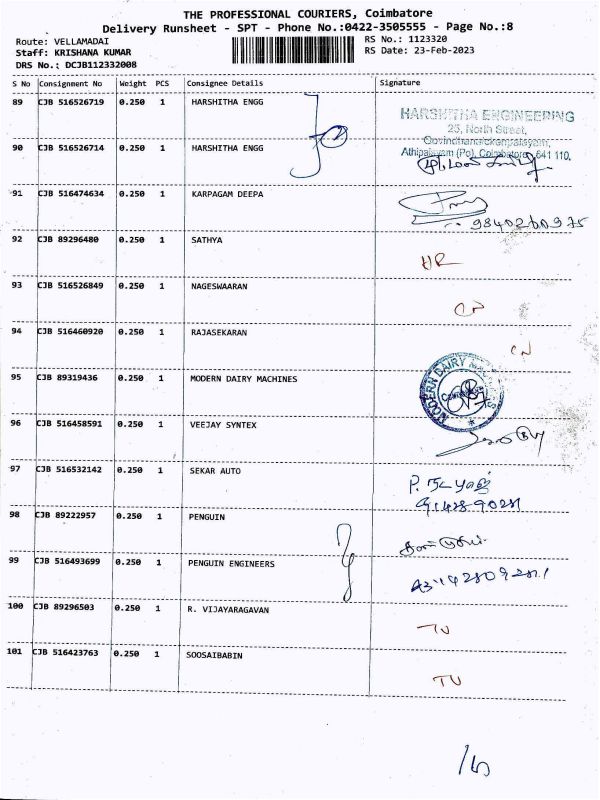 THE PROFESSIONAL COURIERS, Coimbatore
Delivery Runsheet - SPT - Phone No.:0422-3505555 - Page No.:8
Route: VELLAMADAI
RS No.: 1123320
Staff: KRISHANA KUMAR
RS Date: 23-Feb-2023
DRS No.: DCJB112332008
S No Consignment No Weight PCS Consignee Details Signature
89 CJB 516526719 0.250 1 HARSHITHA ENGG
HARSHITHA ENGINEERING
25, North Street,
90 CJB 516526714 0.250 1 HARSHITHA ENGG
Govindhanaickenpalayam,
Athipalayam (Po), Coimbatore - 641 110.
91 CJB 516474634 0.250 1 KARPAGAM DEEPA
92 CJB 89296480 0.250 1 SATHYA
HR
93 CJB 516526849 0.250 1 NAGESWAARAN
94 CJB 516460920 0.250 1 RAJASEKARAN
95 CJB 89319436 0.250 1 MODERN DAIRY MACHINES
MODERN DAIRY MACHINES
96 CJB 516458591 0.250 1 VEEJAY SYNTEX
97 CJB 516532142 0.250 1 SEKAR AUTO
98 CJB 89222957 0.250 1 PENGUIN
99 CJB 516493699 0.250 1 PENGUIN ENGINEERS
100 CJB 89296503 0.250 1 R. VIJAYARAGAVAN
101 CJB 516423763 0.250 1 SOOSAIBABIN